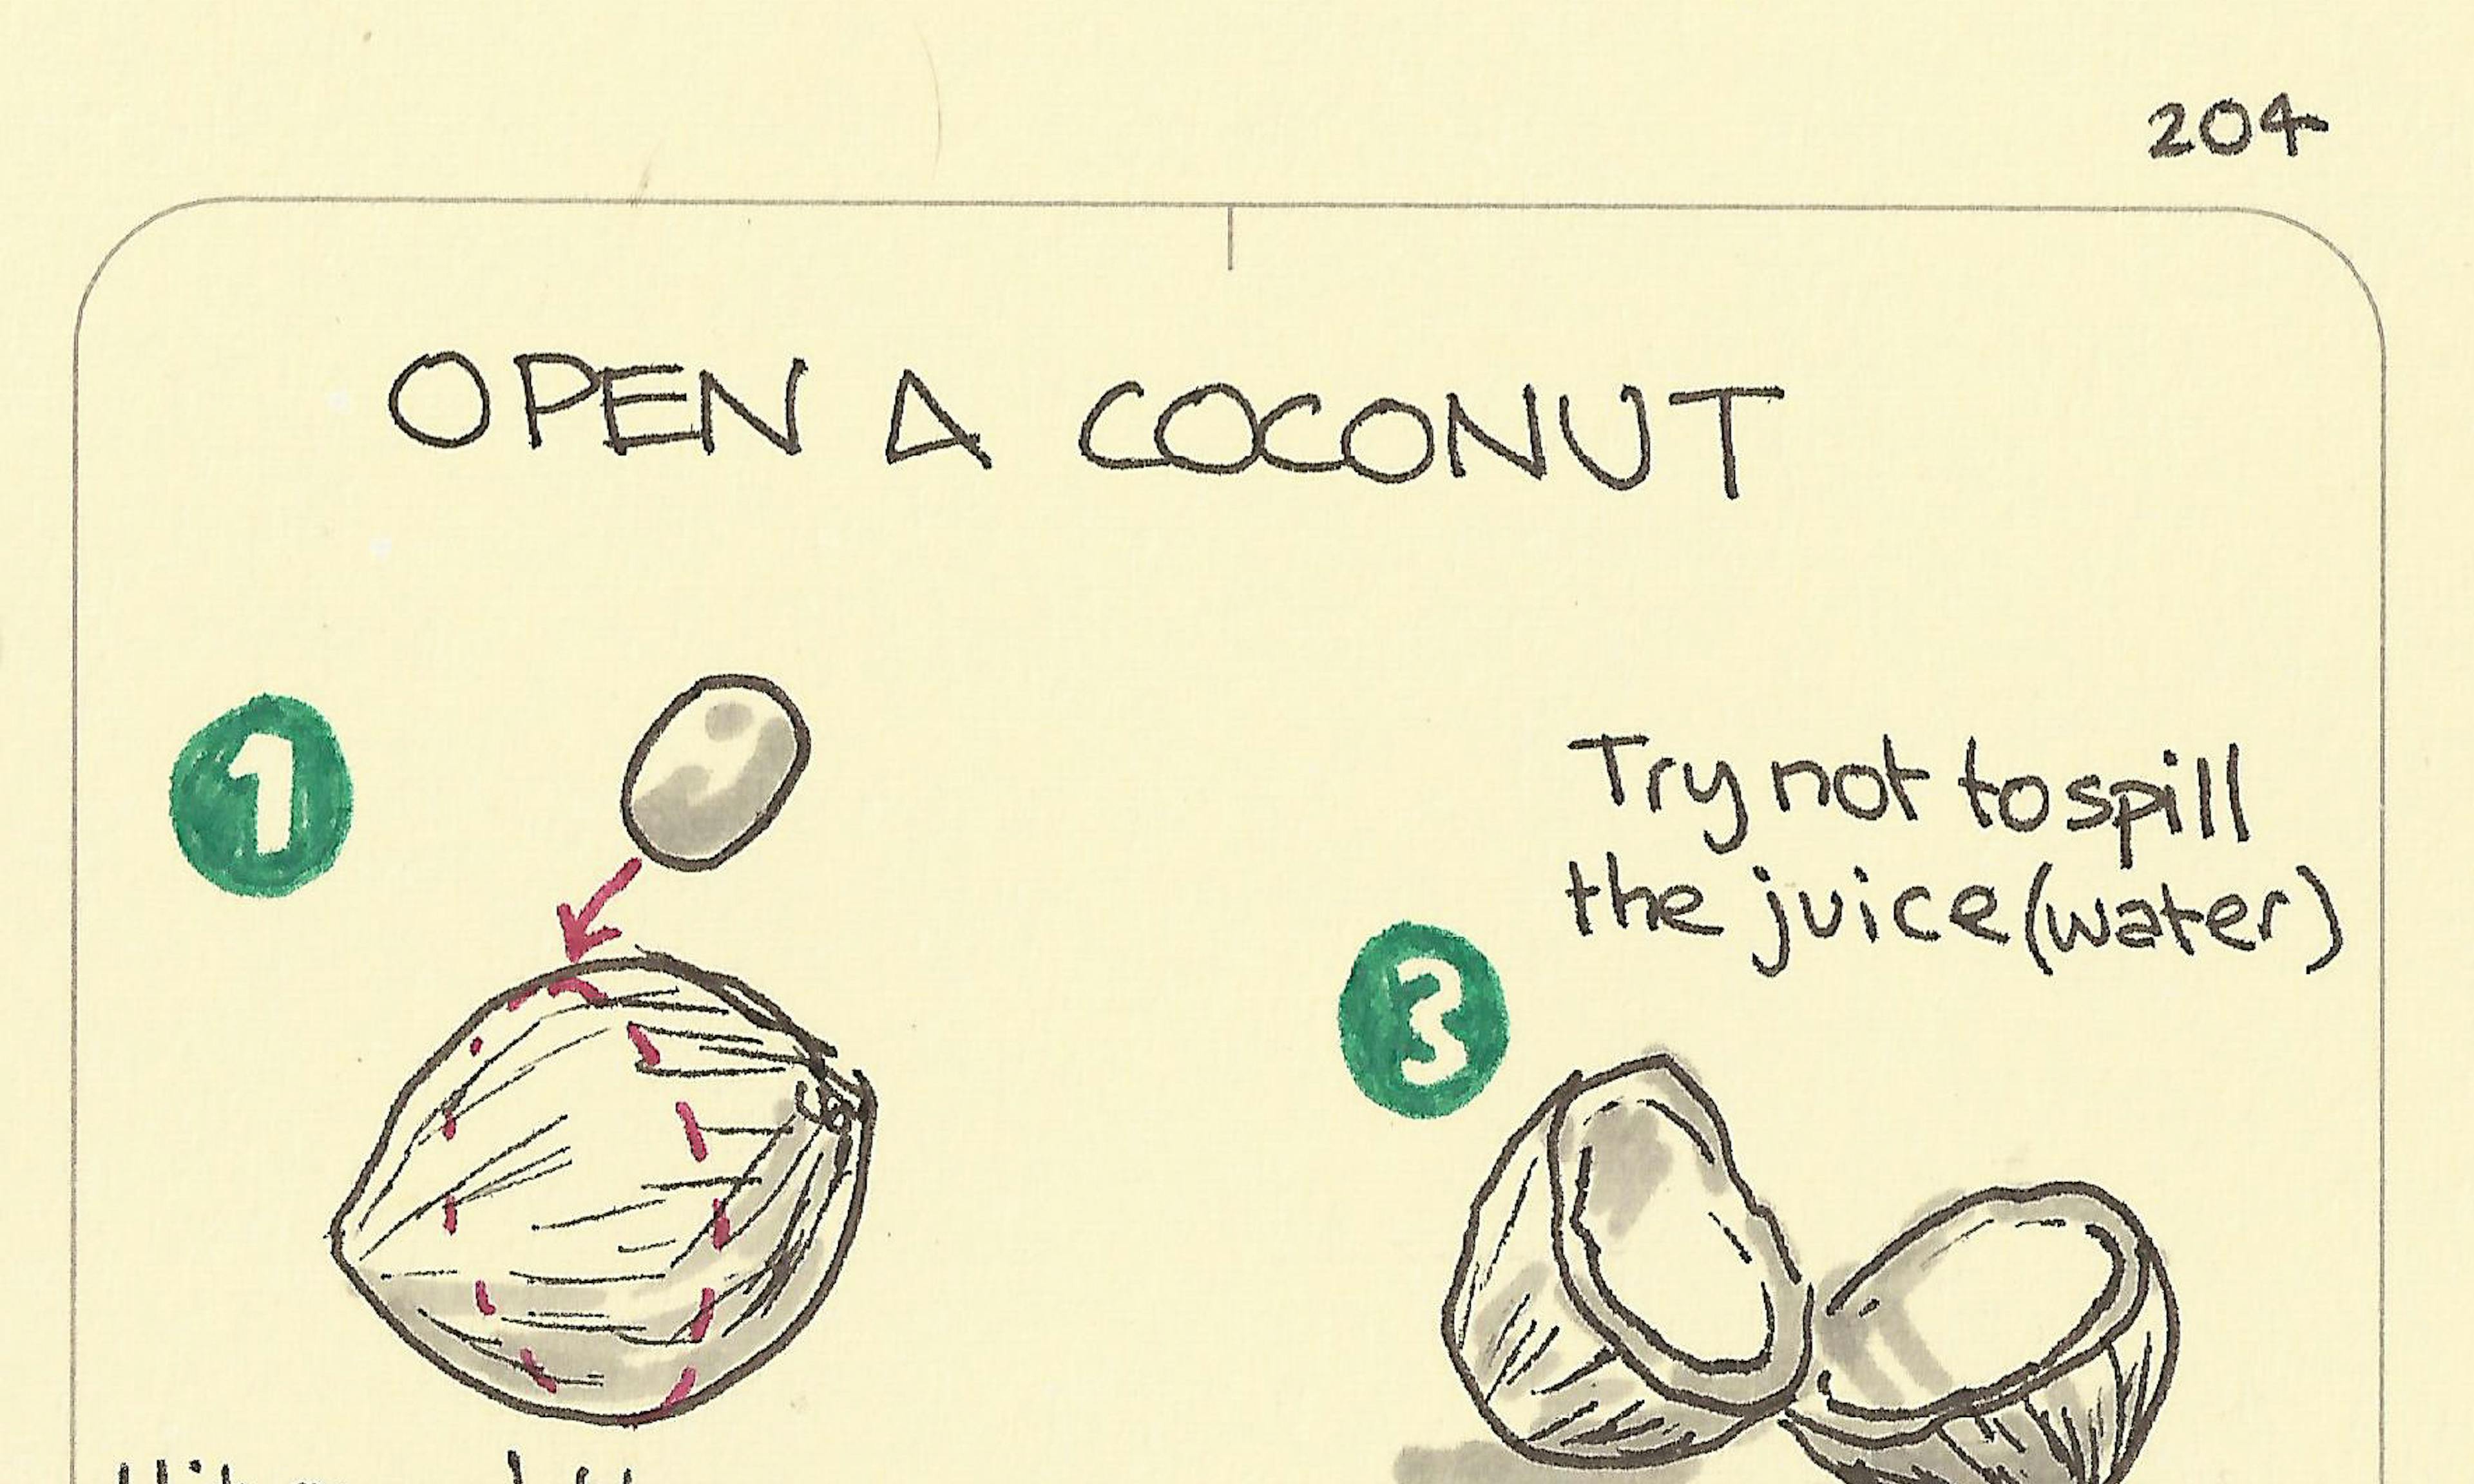 204
OPEN A COCONUT
1
Try not to spill
the juice (water)
3